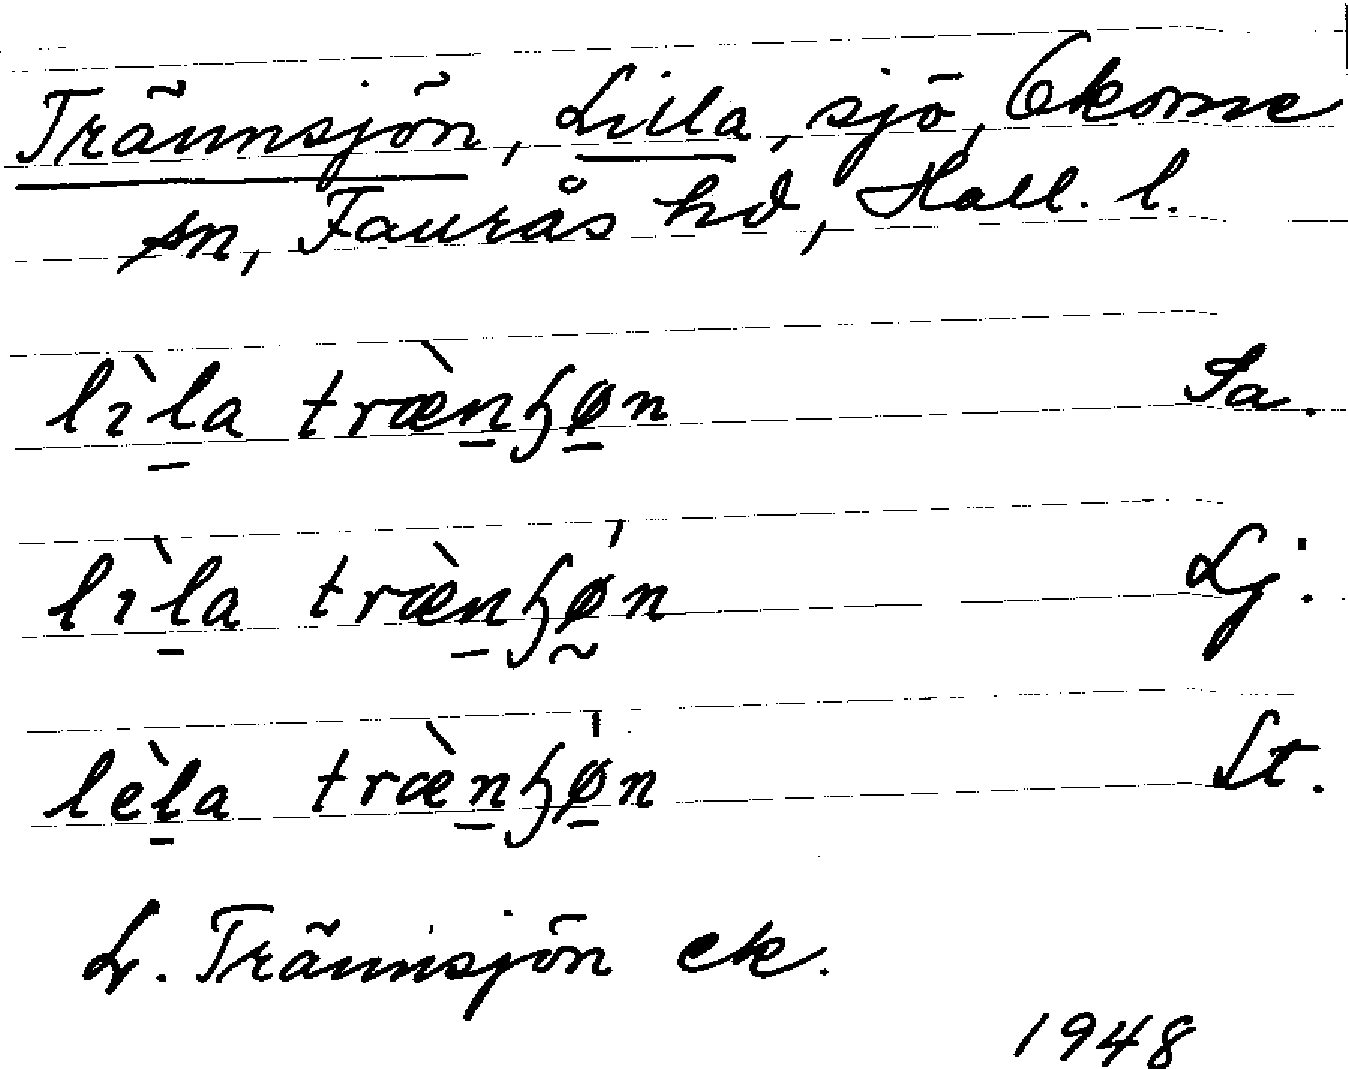 Trännsjön, Lilla, sjö, Okome
sn, Faurås hd, Hall. l.
lı̀l̠a træ̀n̠ʒø̠n Sa.
lı̀l̠a træ̀n̠ʒǿ̰n Lj.
lèl̠a træ̀n̠ʒǿ̠n St.
L. Trännsjön ek.
1948